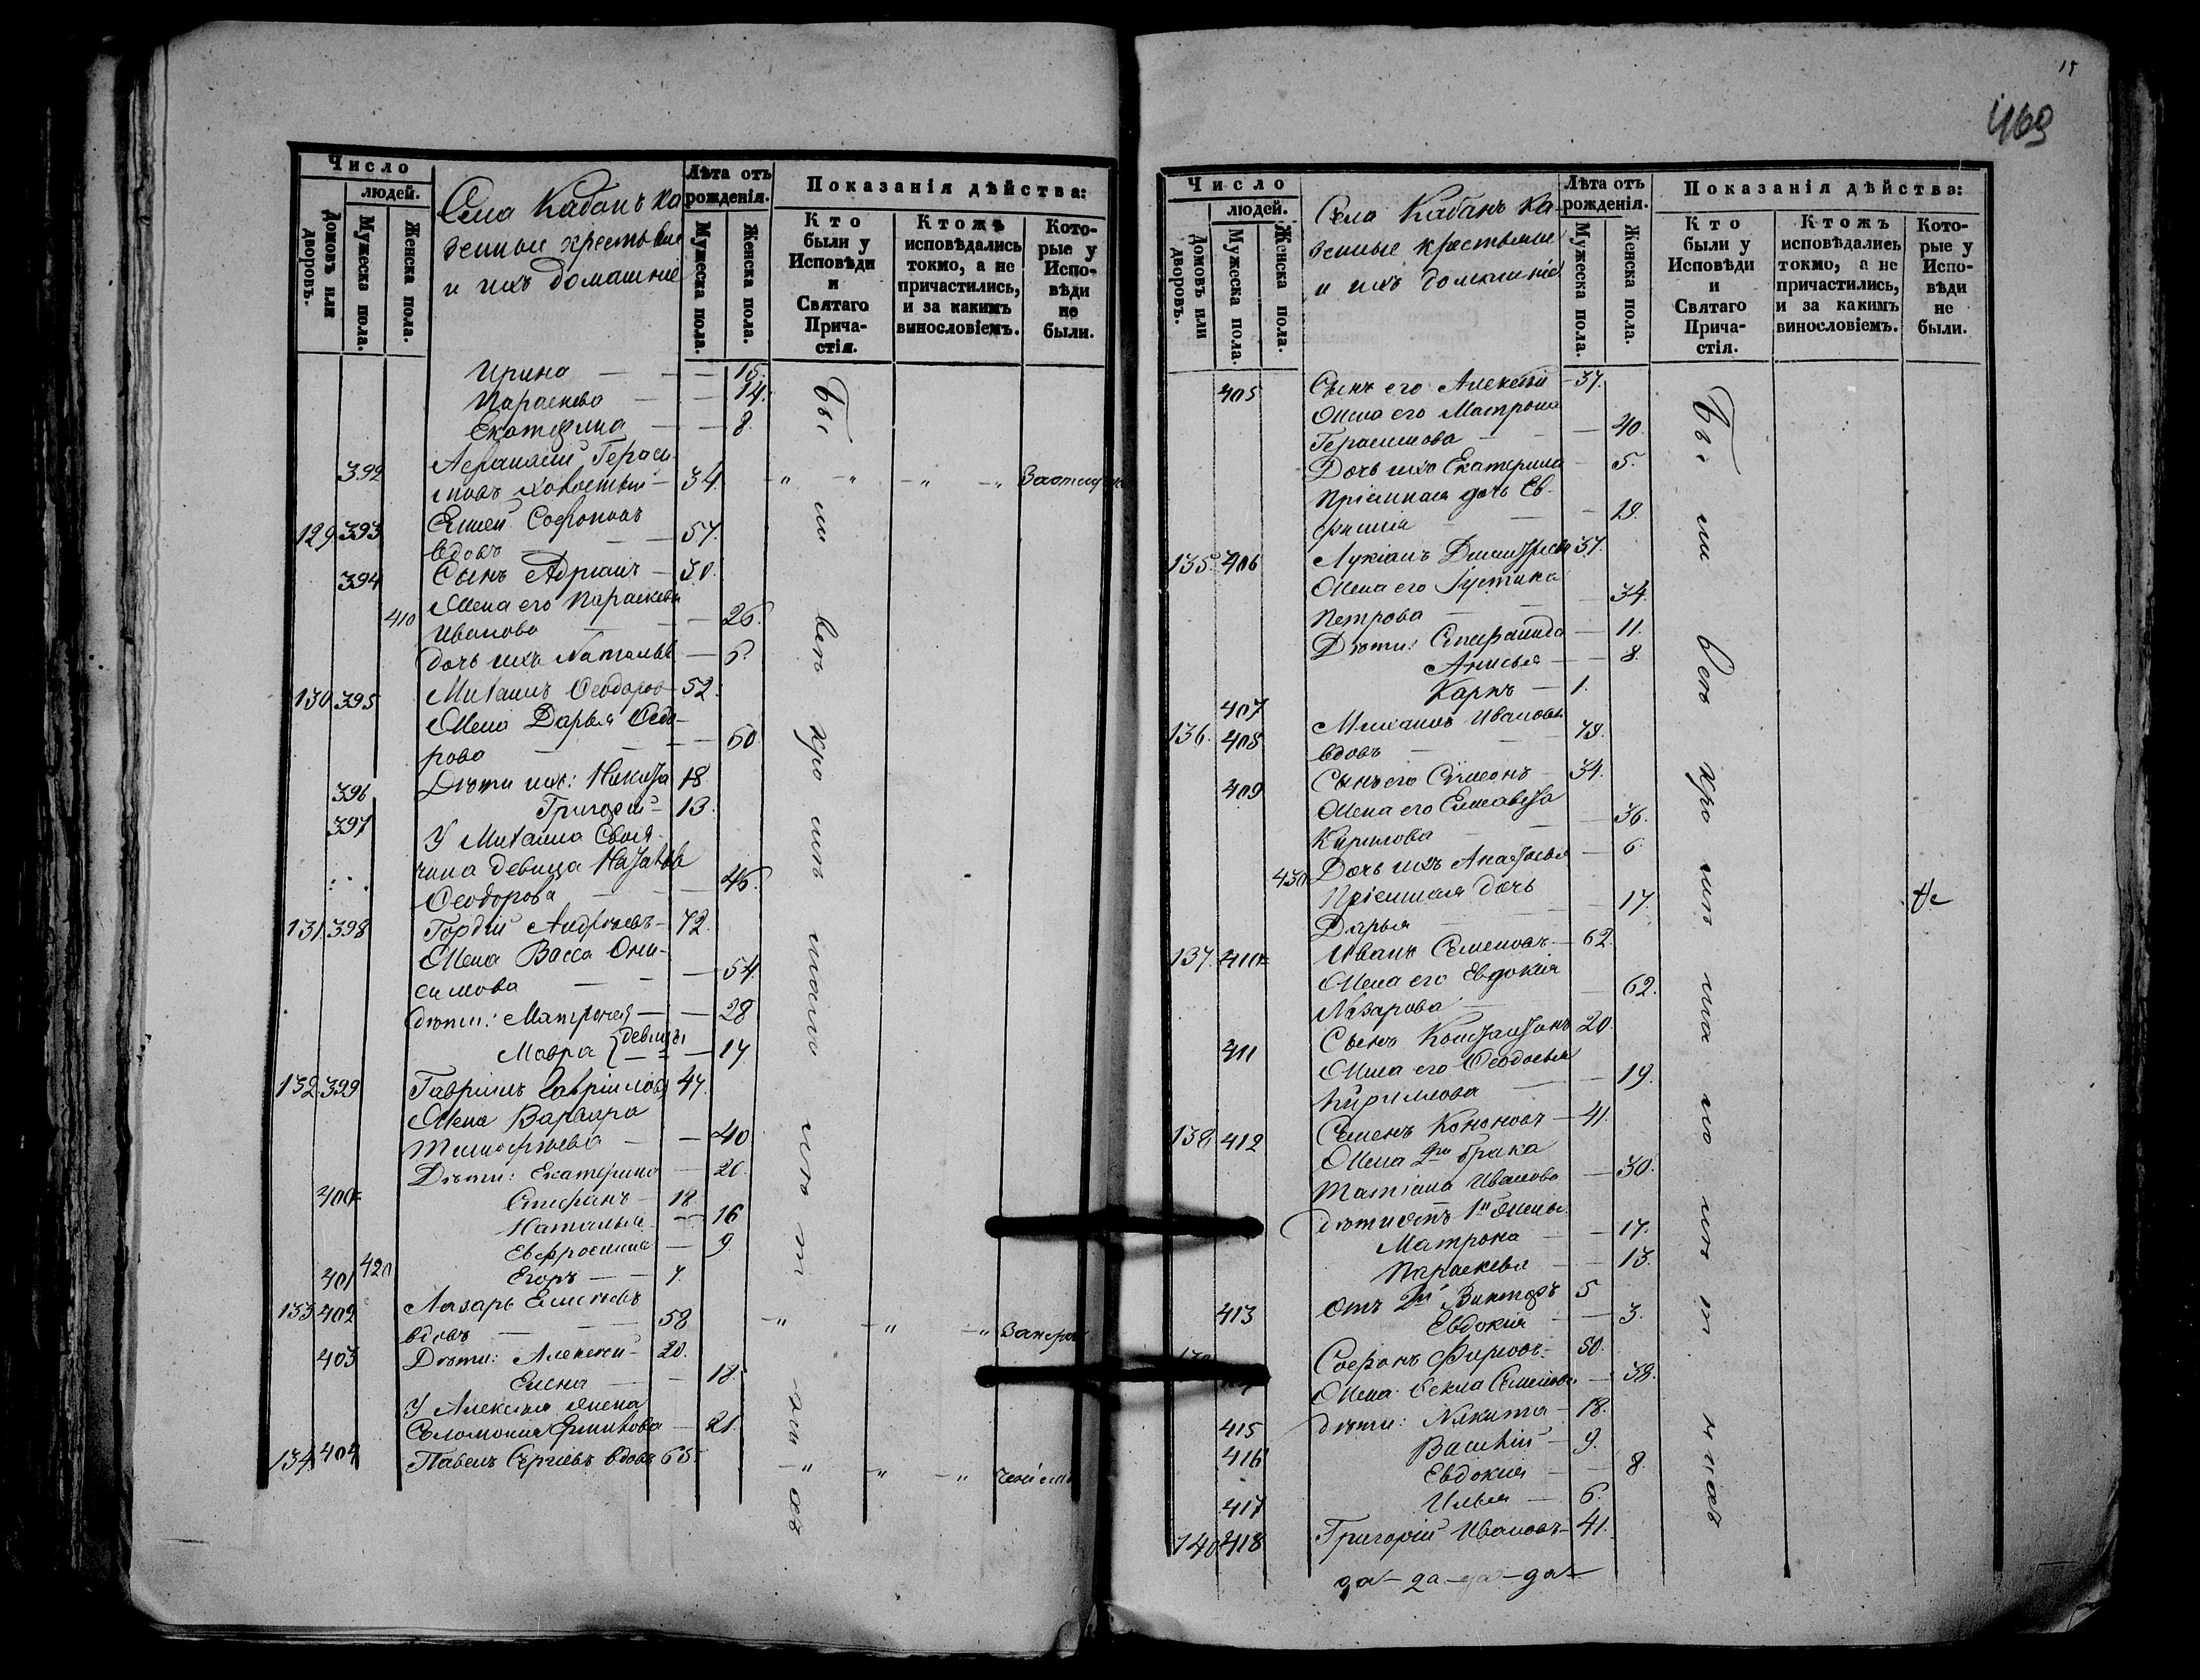 Число
людей.
Домовъ или дворовъ.
Мужеска пола.
Женска пола.
Села Кабанъ ка
зенные крестьяне
и ихъ домашніе
Лѣта отъ рожденія.
Мужеска пола.
Женска пола.
Показанія дѣйства:
Кто были у Исповѣди и Святаго Прича- стія.
Ктожъ исповѣдались токмо, а не причастились, и за какимъ винословіемъ.
Кото- рые у Испо- вѣди не были.
Ирина — — 16.
Параскева — — 14.
Екатерина — — 8
392 Герасі-
мовъ — 34.
129 393 Елисей Софоновъ
вдовъ — 57.
394 Сынъ Адріанъ — 30.
Жена его Параскева
410 Иванова — 26.
дочь ихъ Наталья — 6.
130 395 Михаилъ Ѳеодоров — 52.
Жена Дарья Ѳедо-
рова — — 50.
396 Дѣти ихъ: Никита 18
397 Григорій — 13.
У Михаила Своя-
чина девица Наталья
Ѳеодорова — 46.
131 398 Гордій Андреевъ — 72.
Жена Васса Они-
симова — 54.
дѣти: Матрона — 28
Мавра } девицы — 17.
132 399 Гавріилъ Гавріиловъ 47.
Жена Варвара
Тимофѣева — 40
Дѣти: Екатерина — 20.
400 Стефанъ — 18.
Наталья — 16
Евфросинія — 9.
401 420 Егоръ — 7.
133 402 Лазарь
вдовъ — 58
403 Дѣти: Алексѣй — 20.
Елена — 18.
У Алексѣя жена
Соломонія — 21.
134 404 Павелъ Сергіевъ вдовъ 65.
15
469
Число
людей.
Домовъ или дворовъ.
Мужеска пола.
Женска пола.
Села Кабанъ ка-
зенные крестьяне
и ихъ домашніе
Лѣта отъ рожденія.
Мужеска пола.
Женска пола.
Показанія дѣйства:
Кто были у Исповѣди и Святаго Прича- стія.
Ктожъ исповѣдались токмо, а не причастились, и за какимъ винословіемъ.
Кото- рые у Испо- вѣди не были.
405 Сынъ его Алексѣй — 37.
Жена его Матрона
Герасимова — 40.
Дочь ихъ Екатерина — 5.
Пріемная дочь Ев-
фимія — 19.
135 406 Лукіанъ 37.
Жена его Іустина
Петрова — 34.
Дѣти: Степанида — 11.
Анисья — 8.
407 Карпъ — 1.
136. 408 Михаилъ Ивановъ
вдовъ — 79.
409 Сынъ его Симеонъ — 34.
Жена его Елисавета
Кирилова — 36.
Дочь ихъ Анастасья — 6
430 Пріемная дочь
Дарья — 17.
137. 410 Иванъ Семеновъ — 62.
Жена его Евдокія
Назарова — 62.
411 Сынъ Константинъ 20.
Жена его Ѳеодосья
Кириллова — 19.
138 412 Семенъ Кононовъ — 41.
Жена 2го брака
Татіана Иванова — 30.
дѣти отъ 1й жены
Матрона — 17.
Параскева — 13.
413 Отъ 2й Викторъ 5
Евдокія — 3.
Софонъ Фирсовъ — 50.
Жена Ѳекла Семенова — 38.
415 дѣти: Никита — 18.
416 Василій — 9.
Евдокія — 8.
417 Илья — 6.
140 418 Григорій Ивановъ — 41.